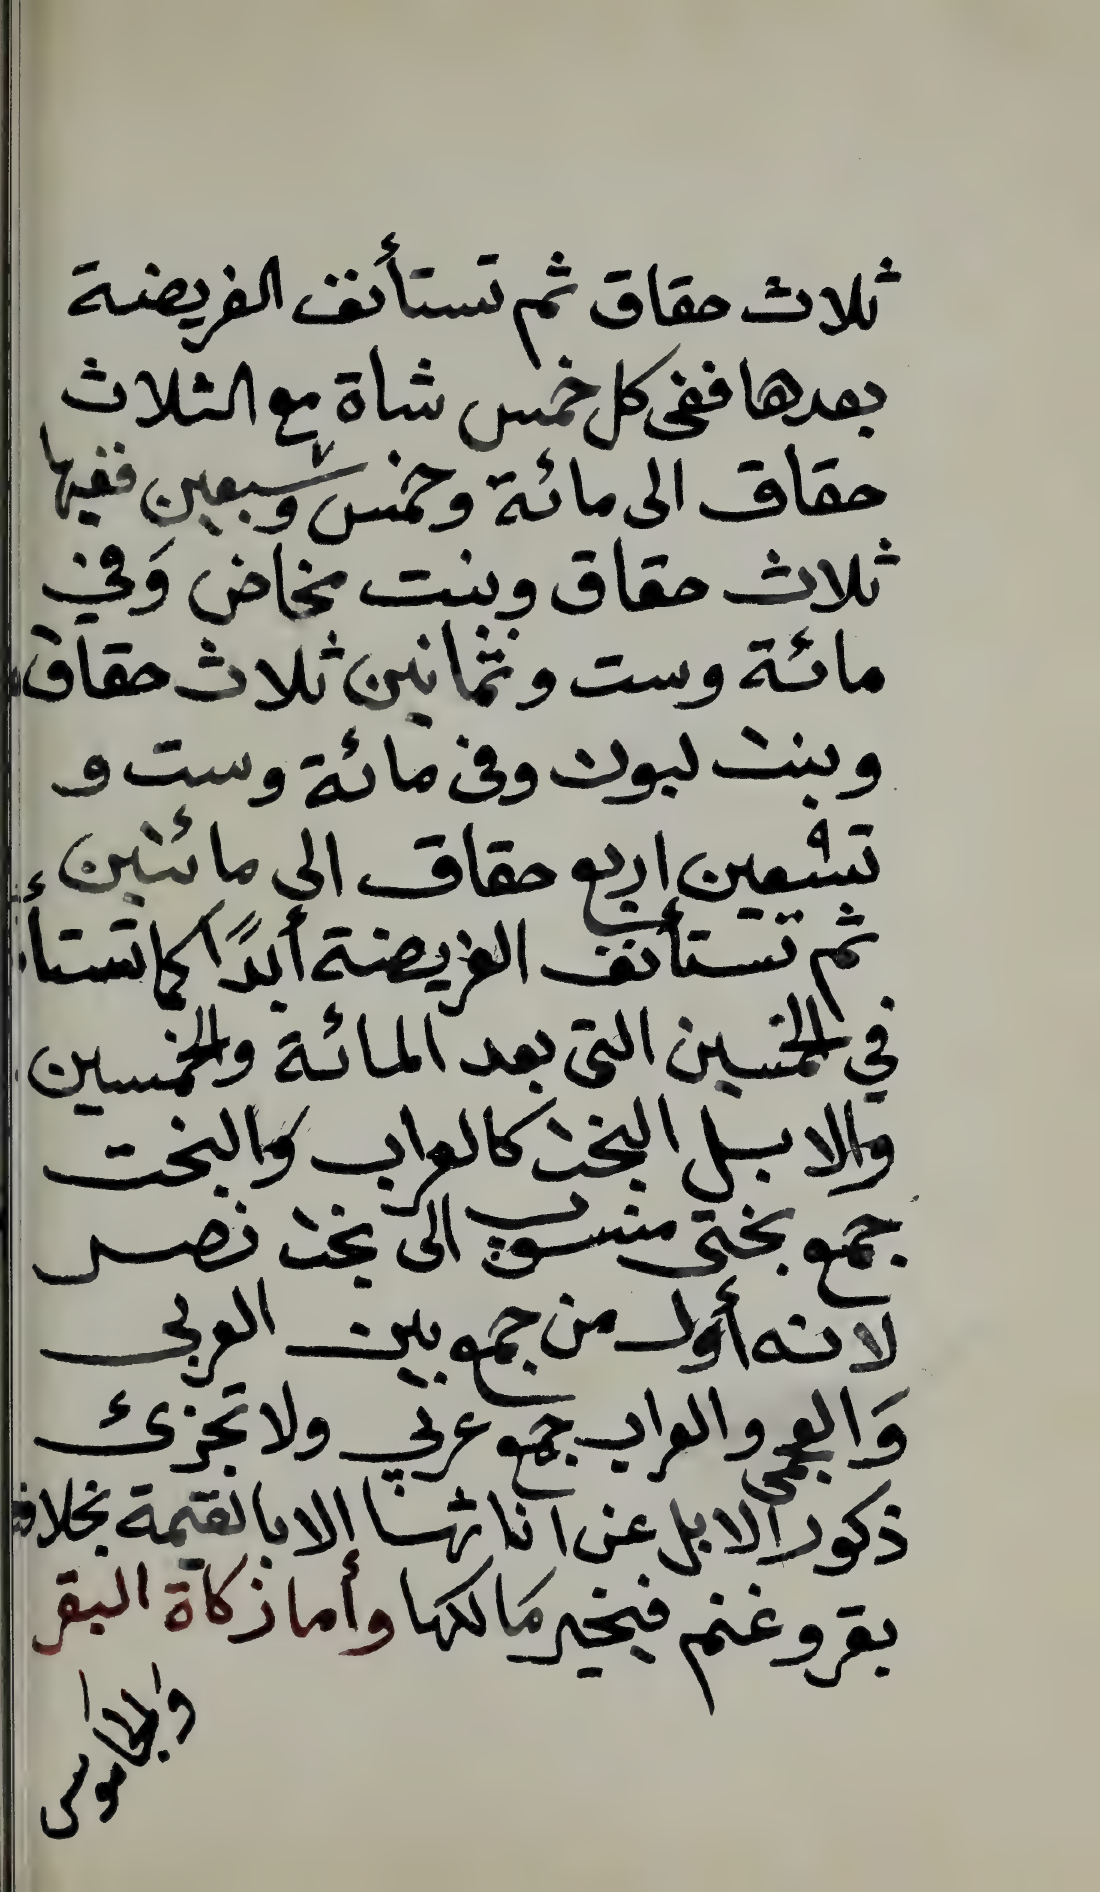 ثلاث حقاق ثم تستأنف الفريضة
بعدها ففى كل خمس شاة مع الثلاث
حقاق الى مائة وخمس وسبعين ففيها
ثلاث حقاق وبنت مخاض وَفي
مائة وست وثمانين ثلاث حقاق
وبنت لبون وفى مائة وست و
تسعين اربع حقاق الى مائتين
ثم تستأنف الفريضة أبدًا كما تستأ
في الخمسين التى بعد المائة والخمسين
والابل البخت كالعراب وَالبخت
جمع بختى منسوب الى بخت نصر
لانه أول من جمع بين العربى
وَالعجمى والعراب جمع عربي ولا تجزئ
ذكور الابل عن اناثها الا بالقيمة بخلاف
بقر وغنم فيخير مَالكها وأما زكاة البقر
والجاموس